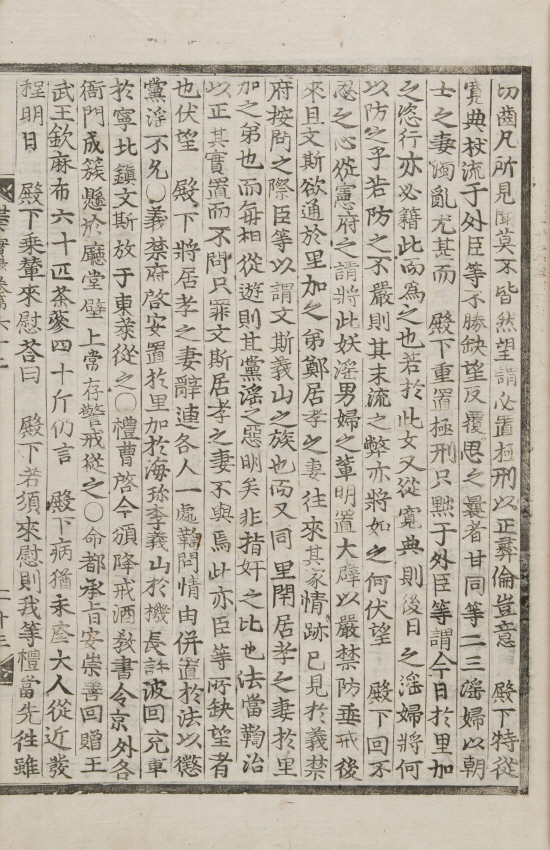 切齒凡所見聞莫不皆然望謂必置極刑以正彝倫豈意　殿下特從
寬典杖流于外臣等不勝缺望反覆思之曩者甘同等二三淫婦以朝
士之妻濁亂尤甚而　殿下重置極刑只黜于外臣等謂今日於里加
之恣行亦必籍此而爲之也若於此女又從寬典則後日之淫婦將何
以防之乎若防之不嚴則其末流之弊亦將如之何伏望　殿下回不
忍之心從憲府之請將此妖淫男婦之輩明置大辟以嚴禁防垂戒後
來且文斯欲通於里加之弟鄭居孝之妻往來其家情跡已見於義禁
府按問之際臣等以謂文斯義山之族也而又同里閈居孝之妻於里
加之弟也而每相從遊則其黨淫之惡明矣非指奸之比也法當鞫治
以正其實置而不問只罪文斯居孝之妻不與焉此亦臣等所缺望者
也伏望　殿下將居孝之妻辭連各人一處鞫問情由併置於法以懲
黨淫不允○義禁府啓安置於里加於海珍李義山於機長許波回充軍
於寧北鎭文斯放于東萊從之○禮曹啓今頒降戒酒敎書令京外各
衙門成簇懸於廳堂壁上常存警戒從之○命都承旨安崇善回贈王
武王欽麻布六十匹茶蔘四十斤仍言　殿下病猶未痊大人從近發
程明日　殿下乘輦來慰荅曰　殿下若須來慰則我等禮當先往雖